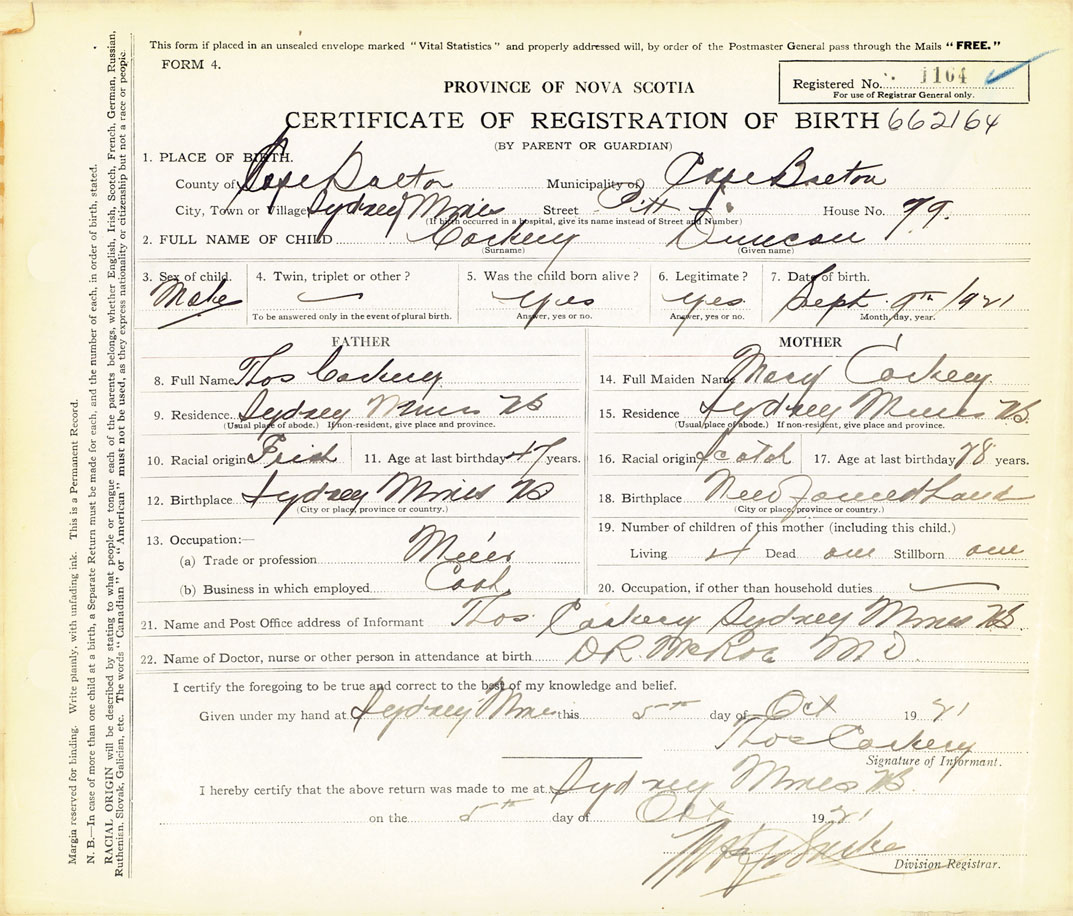 This form if placed in an unsealed envelope marked "Vital Statistics" and properly addressed will, by order of the Postmaster General pass through the Mails "FREE."
FORM 4.
Registered No. 1164
For use of Registrar General only.
PROVINCE OF NOVA SCOTIA
CERTIFICATE OF REGISTRATION OF BIRTH 662164
(BY PARENT OR GUARDIAN)
1. PLACE OF BIRTH.
County of Cape Breton Municipality of Cape Breton
City, Town or Village Sydney Mines Street Pitt St House No. 99.
(If birth occurred in a hospital, give its name instead of Street and Number)
2. FULL NAME OF CHILD Coskery Duncan
(Surname) (Given name)
3. Sex of child. 4. Twin, triplet or other? 5. Was the child born alive? 6. Legitimate? 7. Date of birth.
Male Yes Yes Sept 9th 1921
To be answered only in the event of plural birth. Answer, yes or no. Answer, yes or no. Month, day, year.
FATHER MOTHER
8. Full Name Thos Coskery 14. Full Maiden Name Mary Coskery
9. Residence Sydney Mines 15. Residence Sydney Mines
(Usual place of abode.) If non-resident, give place and province. (Usual place of abode.) If non-resident, give place and province.
10. Racial origin 11. Age at last birthday 47 years. 16. Racial origin Scotch 17. Age at last birthday years.
12. Birthplace Sydney Mines 18. Birthplace
(City or place, province or country.) (City or place, province or country.)
19. Number of children of this mother (including this child.)
13. Occupation:—
(a) Trade or profession Living 4 Dead one Stillborn one
(b) Business in which employed 20. Occupation, if other than household duties
21. Name and Post Office address of Informant Thos Coskery Sydney Mines
22. Name of Doctor, nurse or other person in attendance at birth DR. McRae MD
I certify the foregoing to be true and correct to the best of my knowledge and belief.
Given under my hand at Sydney Mines this 5th day of Oct 1921
Thos Coskery
Signature of Informant.
I hereby certify that the above return was made to me at Sydney Mines
on the 5th day of Oct 1921
Division Registrar.
Margin reserved for binding. Write plainly, with unfading ink. This is a Permanent Record.
N. B.—In case of more than one child at a birth, a Separate Return must be made for each, and the number of each, in order of birth, stated.
RACIAL ORIGIN will be described by stating to what people or tongue each of the parents belongs, whether English, Irish, Scotch, French, German, Russian,
Ruthenian, Slovak, Galician, etc. The words "Canadian" or "American" must not be used, as they express nationality or citizenship but not a race or people.